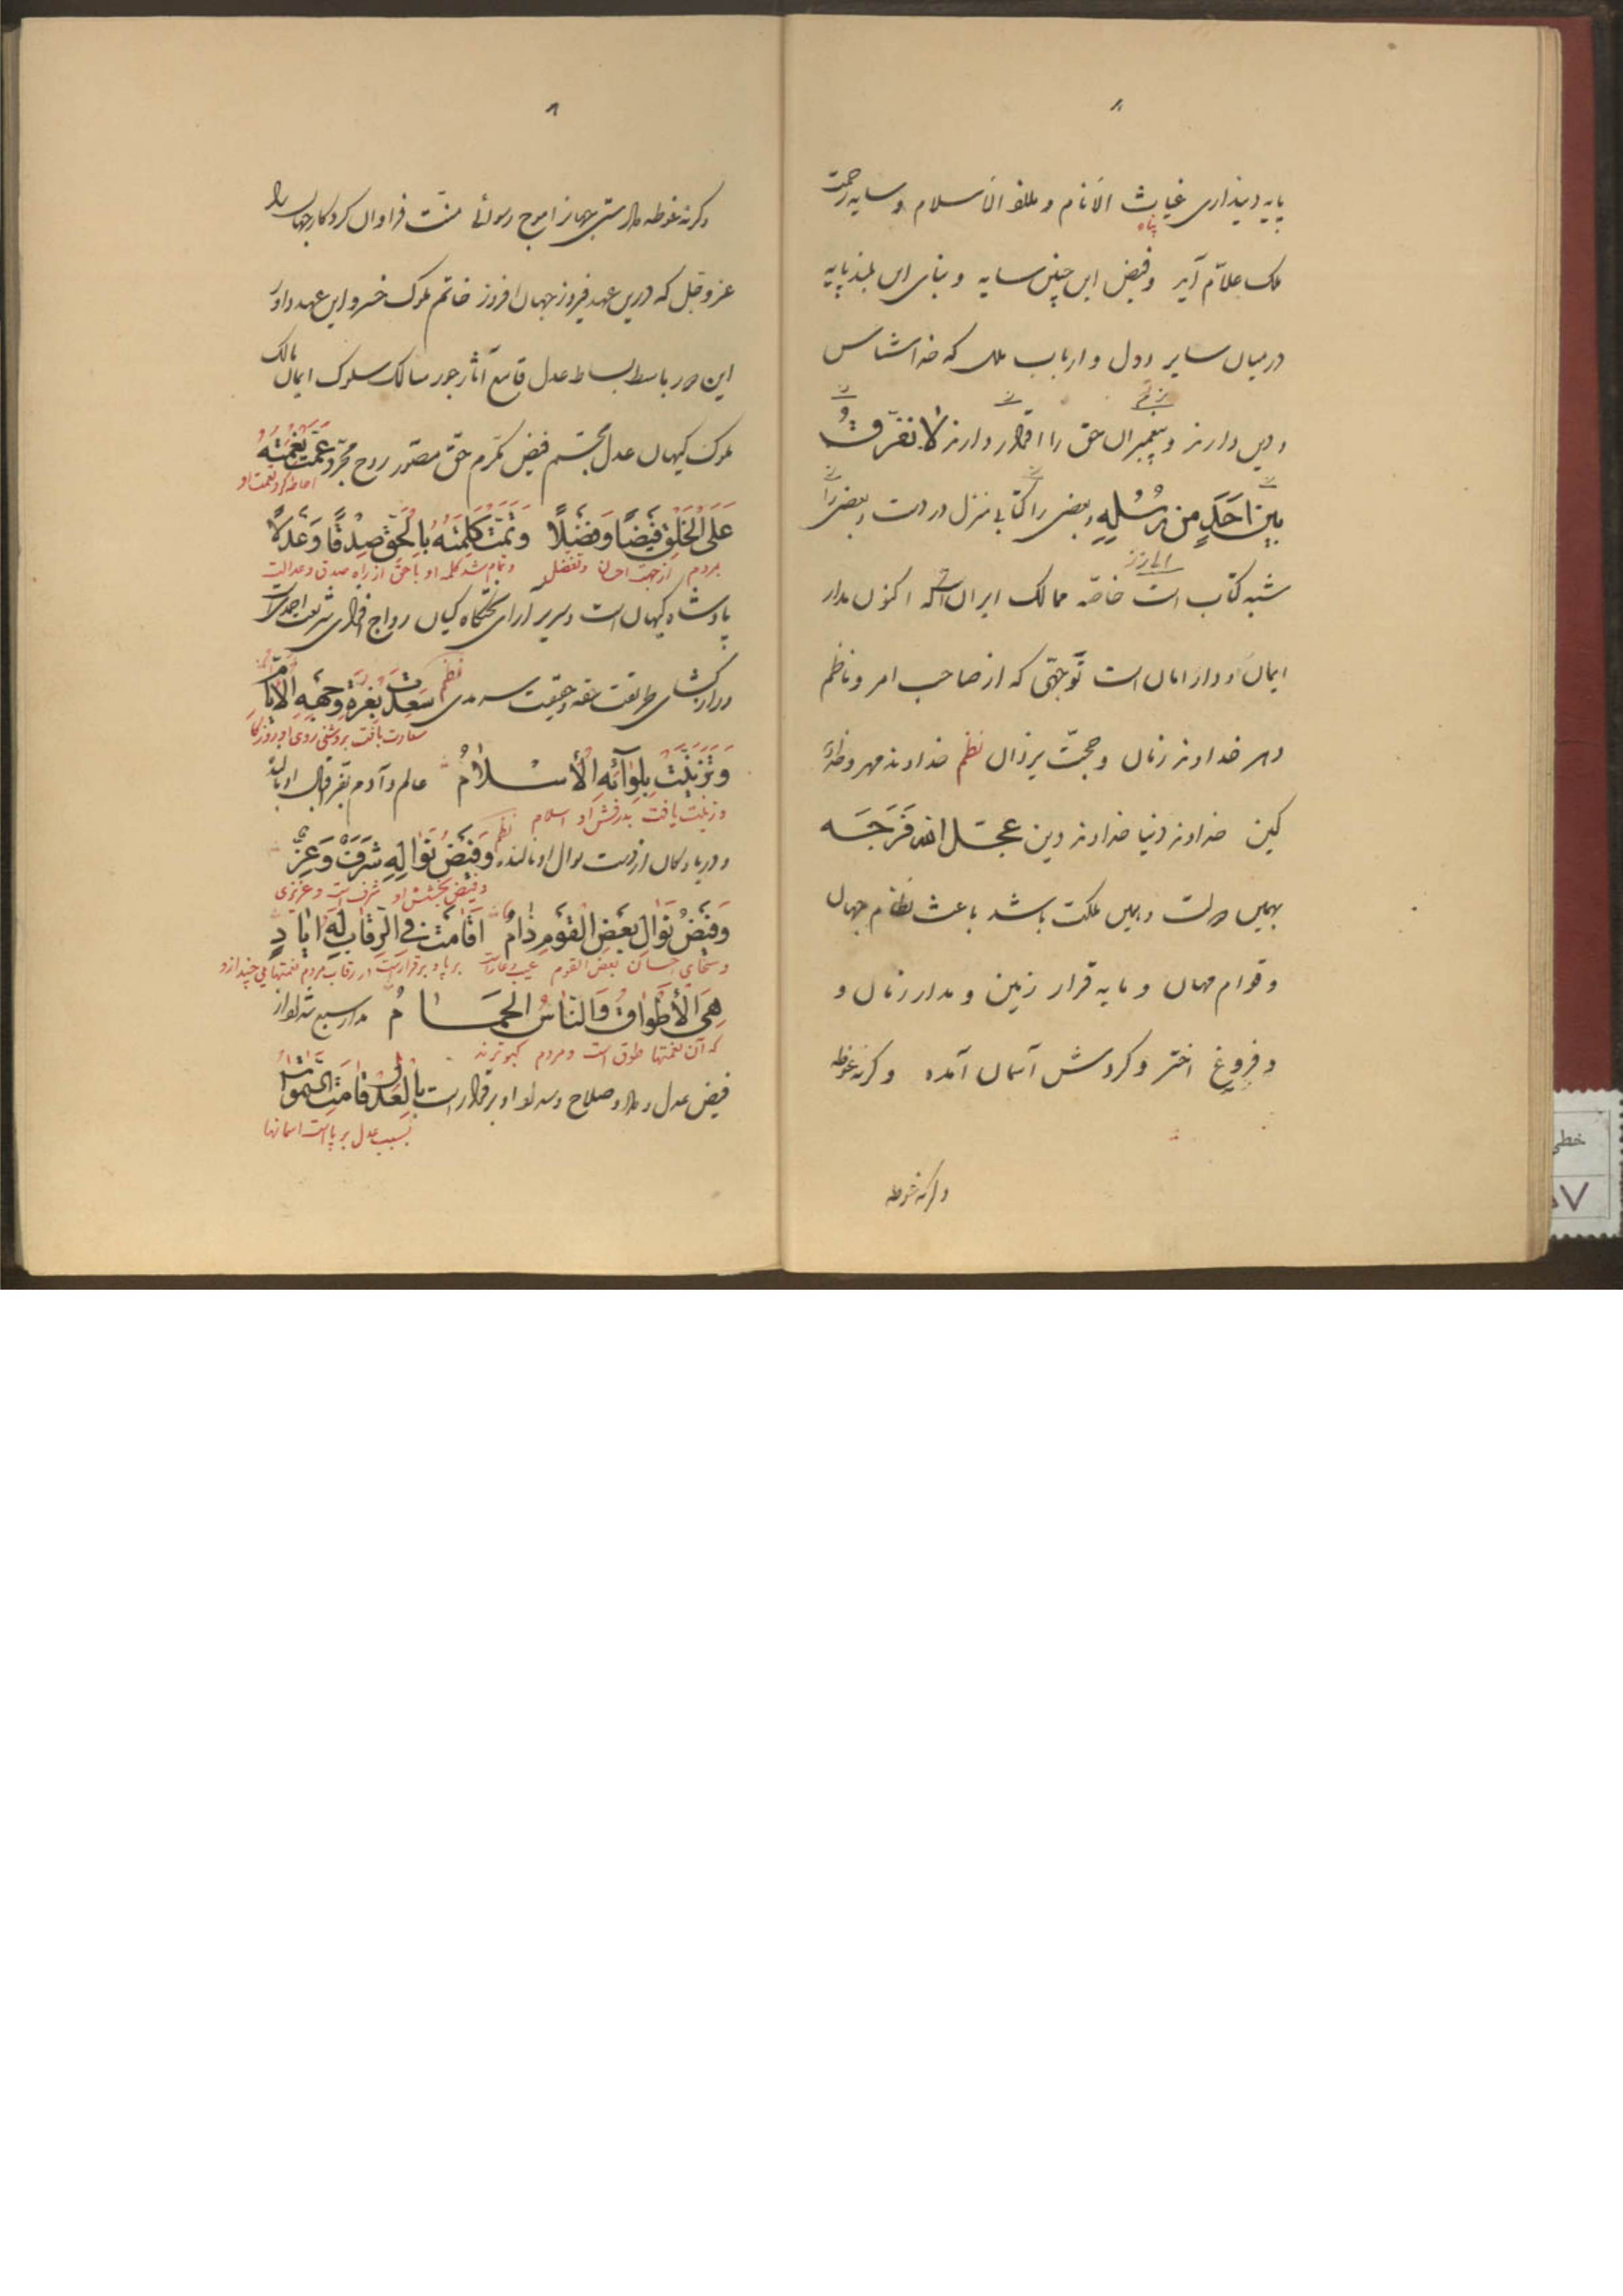 پایه دینداری غیاث الانام و الاسلام و سایه رحمت
پناه
ملک علّام آید و فیض این چنین سایه و بنای این بلندپایه
در میان سایر دول و ارباب ملل که خداشناس
و دین دارند و پیغمبران حق را اقرار دارند لا نفرّقُ
بین اَحَدٍ من رُسُلِهِ بعضی را کتابی منزل در دست و بعضی را
شبه کتاب است خاصّه ممالک ایران که اکنون مدار
ایمان و دار امان است توجّهی که از صاحب امر و ناظم
دهر خداوند زمان و حجّت یزدان نظم خداوند مهر و خداوند
کین خداوند دنیا خداوند دین عجّل الله فَرَجَه
بهمین دولت و بهمین مملکت باشد باعث نظام جهان
و قوام مهان و مایه قرار زمین و مدار زمان و
و فروغ اختر و گردش آسمان آمده و گرنه غوطه
و گرنه غوطه
۸
و گرنه غوطه جهان را موج رسوائی منّت فراوان کردگار جهان را
عزّ و جلّ که درین عهد فیروز جهان افروز خاتم ملوک خسرو این عهد و داور
این دور باسط بساط عدل قامع آثار جور سالک سلوک ایمان مالک
ملوک کیهان عدل مجسّم فیض مکرم حقّ مصوّر روح مجرّد عَمَّت نِعْمَتُهُ
احاطه کرد نعمت او
عَلَی الْخَلْقِ فَیْضًا وَ فَضْلًا وَ تَمَّتْ کَلِمَتُهُ بِالْحَقِّ صِدْقًا وَ عَدْلًا
بمردم از جهت احسان و تفضل و تمام شد کلمه او با حق از راه صدق و عدالت
پادشاه کیهان است و سریر آرای تختگاه کیان رواج افزای شریعت احمدی است
طریقت حقیقت سرمدی نظم سَعِدَتْ بِغُرَّةِ وَجْهِهِ الْاَیّامُ
سعادت یافت بروشنی روی او روزگار
وَ تَزَیَّنَتْ بِلِوَآئِهِ الْأسْلَامُ عالم و آدم بفرّ اقبال او بالنده
و زینت یافت بدرفش او اسلام نظم
و دریا و کان از دست نوال او نالنده وَ فَیْضُ نَوَالِهِ شَرَفٌ وَ عِزٌّ
و فیض بخشش او شرف است و عزیزی
وَ فَیْضُ نَوَالِ بَعْضِ الْقَوْمِ ذَامٌ اَقَامَتْ فِی الرِّقَابِ لَهُ اَیَادٍ
و سخای احسان بعض القوم عیب و عار است برپا و برقرار است در رقاب مردم نعمتهایی چند از او
هِیَ الْأَطْوَاقُ وَالنَّاسُ الْحَمَامُ
که آن نعمتها طوق است و مردم کبوترند
فیض عدل و داد و صلاح و سداد او برقرار است بِالْعَدْلِ قَامَتِ السَّمَوَاتُ
بسبب عدل برپا است اسمانها
خطی